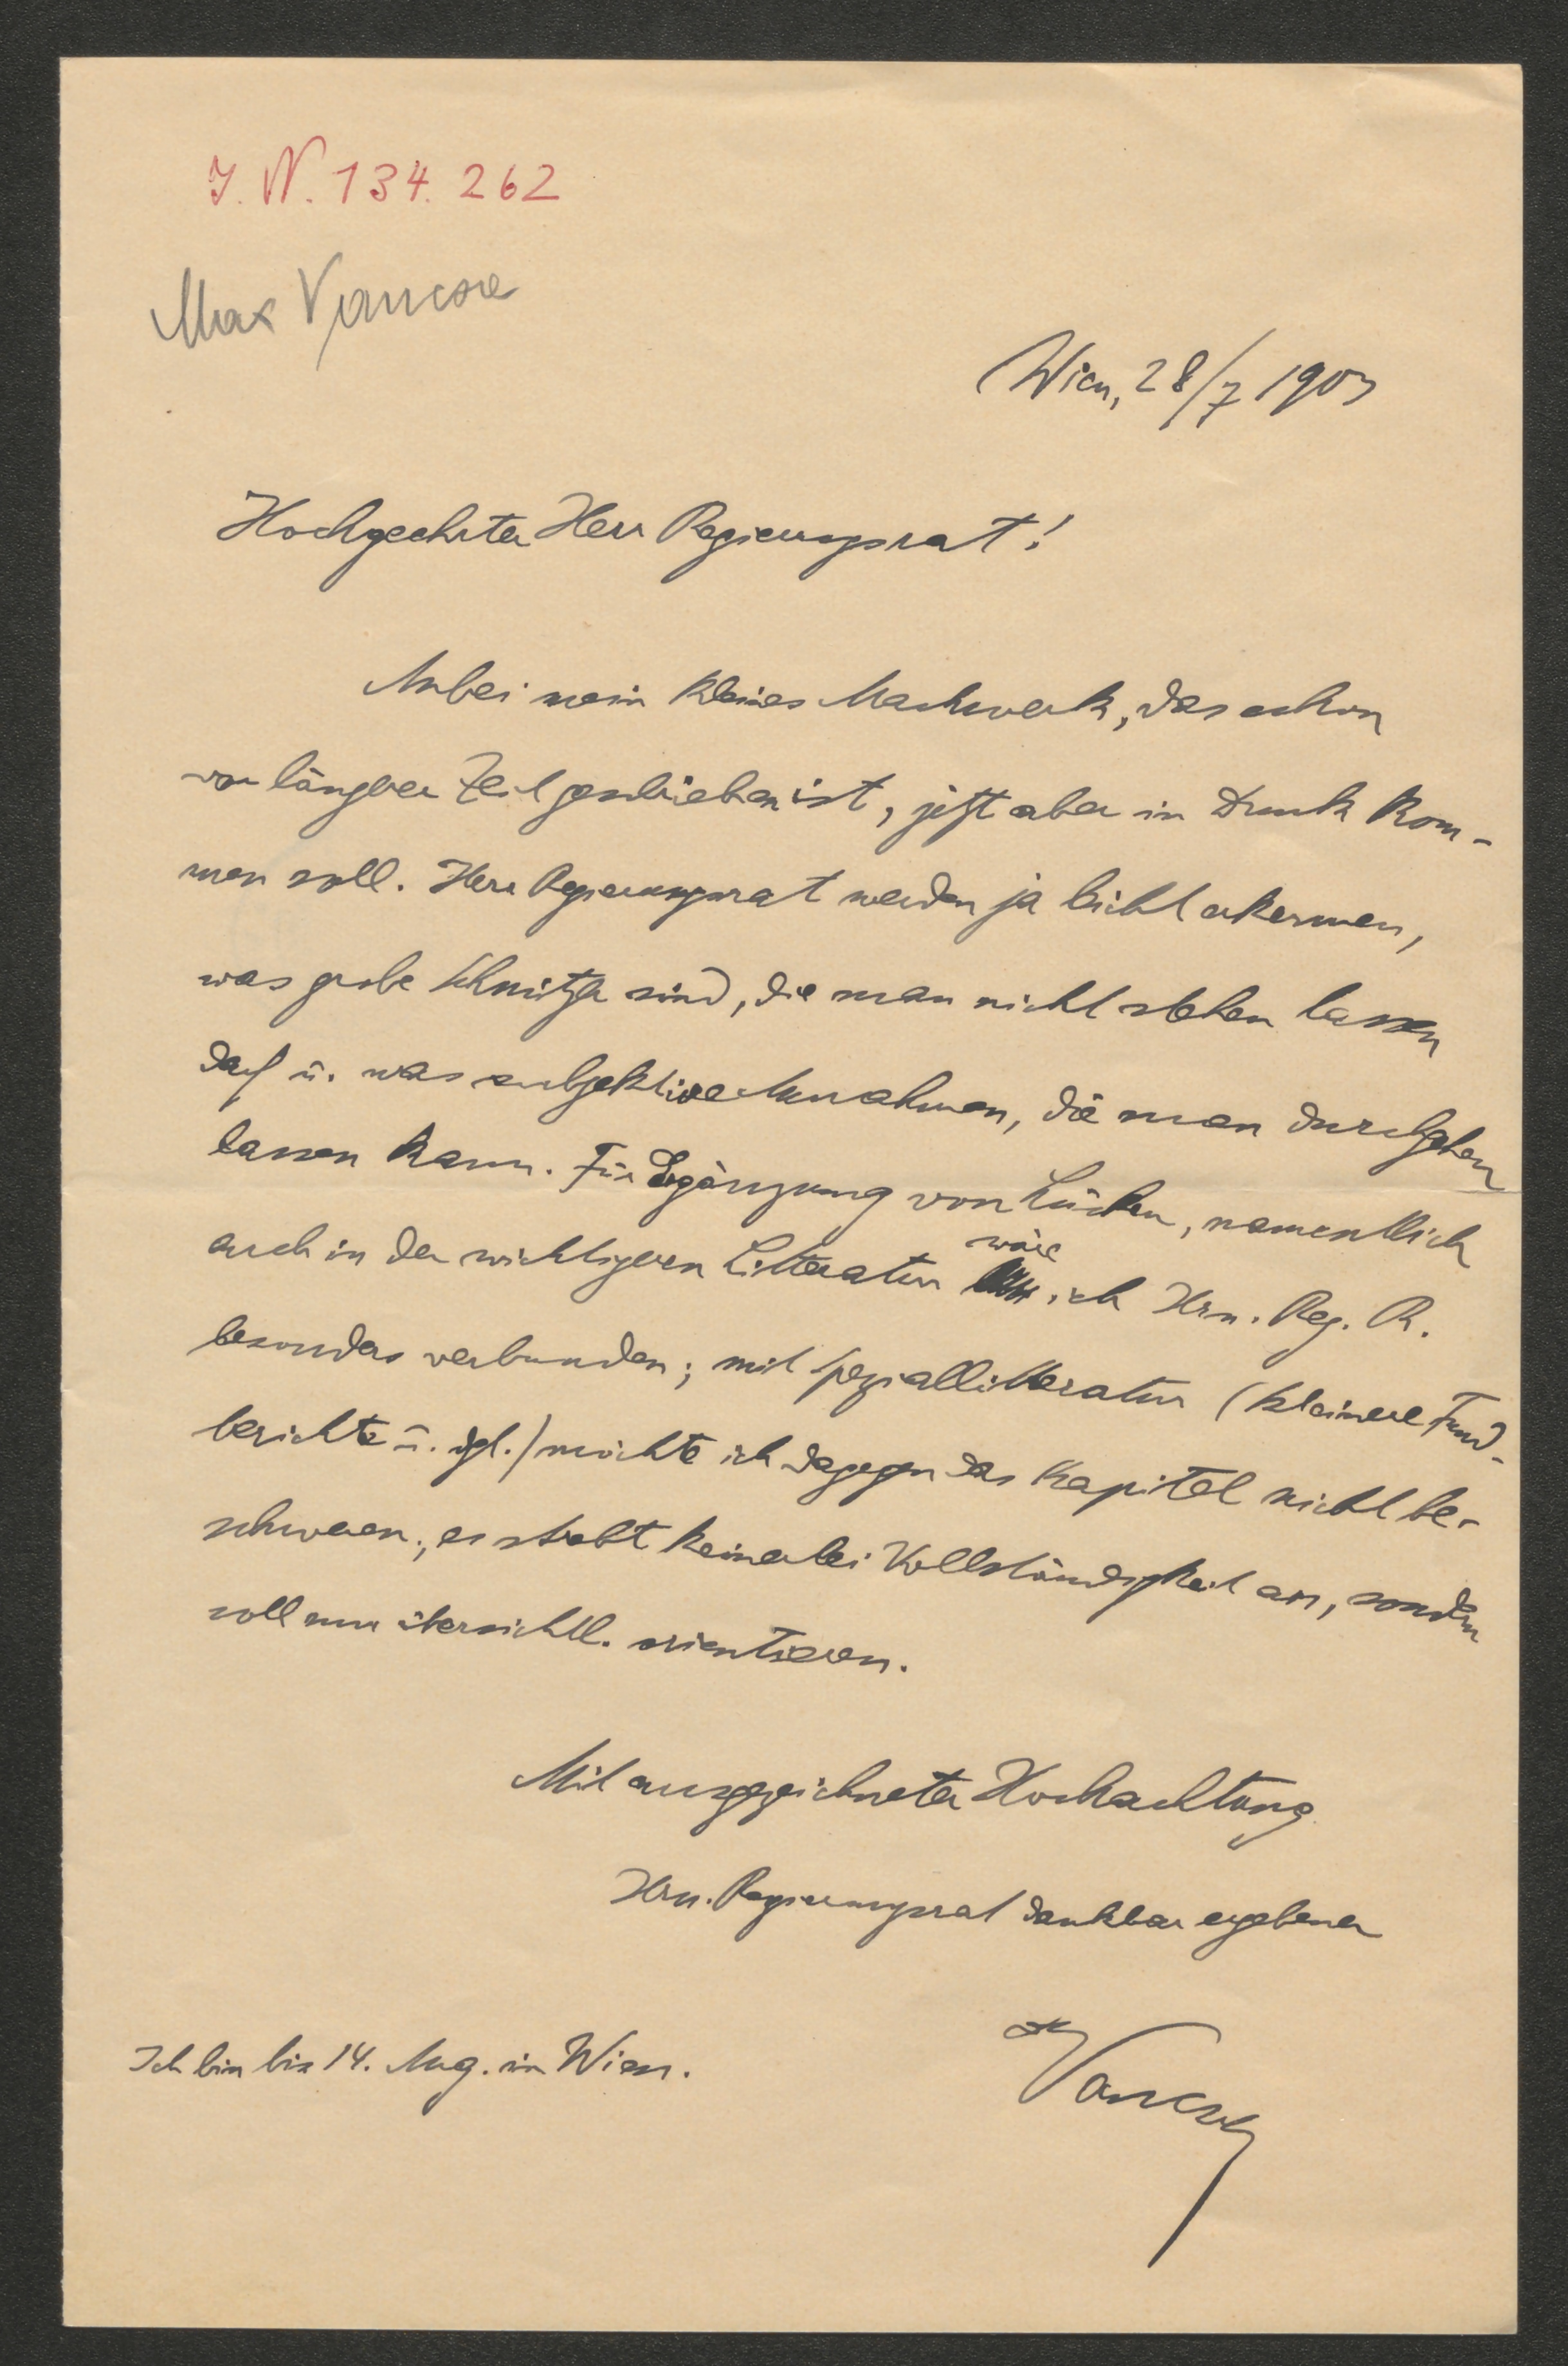 I. N. 134.262
Max Vancsa
Wien, 28/7 1903
Hochgeehrter Herr Regierungsrat!
Anbei mein kleines Machwerk, das schon
vor längerer Zeit geschrieben ist, jetzt aber in Druck kom-
men soll. Herr Regierungsrat werden ja leicht erkennen,
was grobe Schnitzer sind, die man nicht stehen lassen
darf u. was subjektive Annahmen, die man durchgehen
lassen kann. Für Ergänzung von Lücken, namentlich
auch in der wichtigeren Litteratur wäre ich Hrn. Reg. R.
besonders verbunden; mit Speziallitteratur (kleinere Fund-
berichte u. dgl.) möchte ich dagegen das Kapitel nicht be-
schweren; es strebt keinerlei Vollständigkeit an, sondern
soll nur übersichtl. orientieren.
Mit ausgezeichneter Hochachtung
Hrn. Regierungsrat dankbar ergebener
Vancsa
Ich bin bis 14. Aug. in Wien.